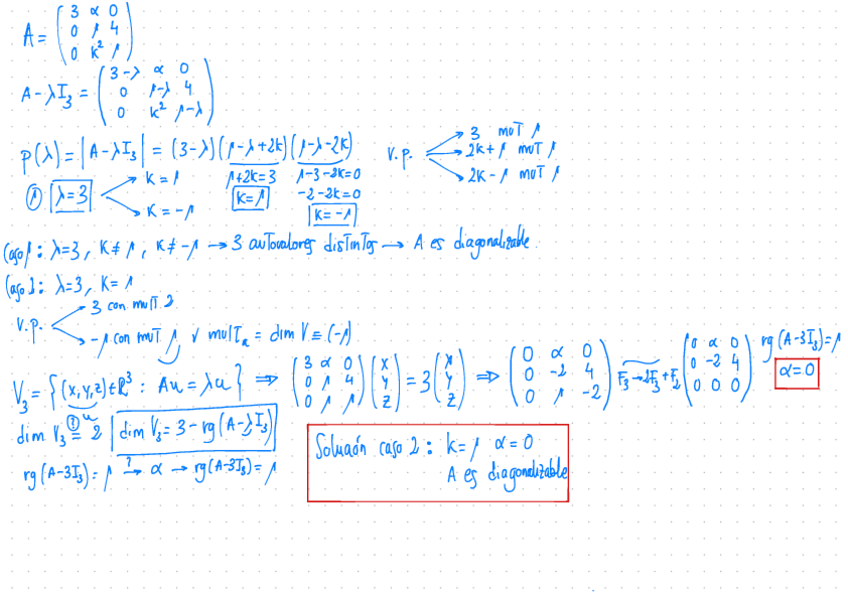 A = ( 3 α 0
0 1 4
0 k² 1 )
A-λI₃ = ( 3-λ α 0
0 1-λ 4
0 k² 1-λ )
p(λ) = |A-λI₃| = (3-λ) (1-λ+2k) (1-λ-2k) V.P. → 3 mult 1
→ 2k+1 mult 1
→ 2k-1 mult 1
① λ=3 → k=1
→ k=-1
1+2k=3
k=1
1-3-2k=0
-2-2k=0
k=-1
Caso 1: λ=3, k≠1, k≠-1 → 3 autovalores distintos → A es diagonalizable.
Caso 2: λ=3, k=1
V.P. → 3 con mult 2
→ -1 con mult 1 ✓ multₐ = dim V ≡ (-1)
V₃ = { (x,y,z) ∈ ℝ³ : Au = λu } ⇒ ( 3 α 0 0 1 4 0 1 1 ) ( x y z ) = 3 ( x y z ) ⇒ ( 0 α 0 0 -2 4 0 1 -2 ) F₃→2F₃+F₂ ( 0 α 0 0 -2 4 0 0 0 ) rg(A-3I₃)=1
u
α=0
dim V₃ =^{?} 2 dim V₃ = 3 - rg(A-λI₃)
rg(A-3I₃)=1 →^{?} α → rg(A-3I₃)=1
Solución caso 2: k=1 α=0
A es diagonalizable